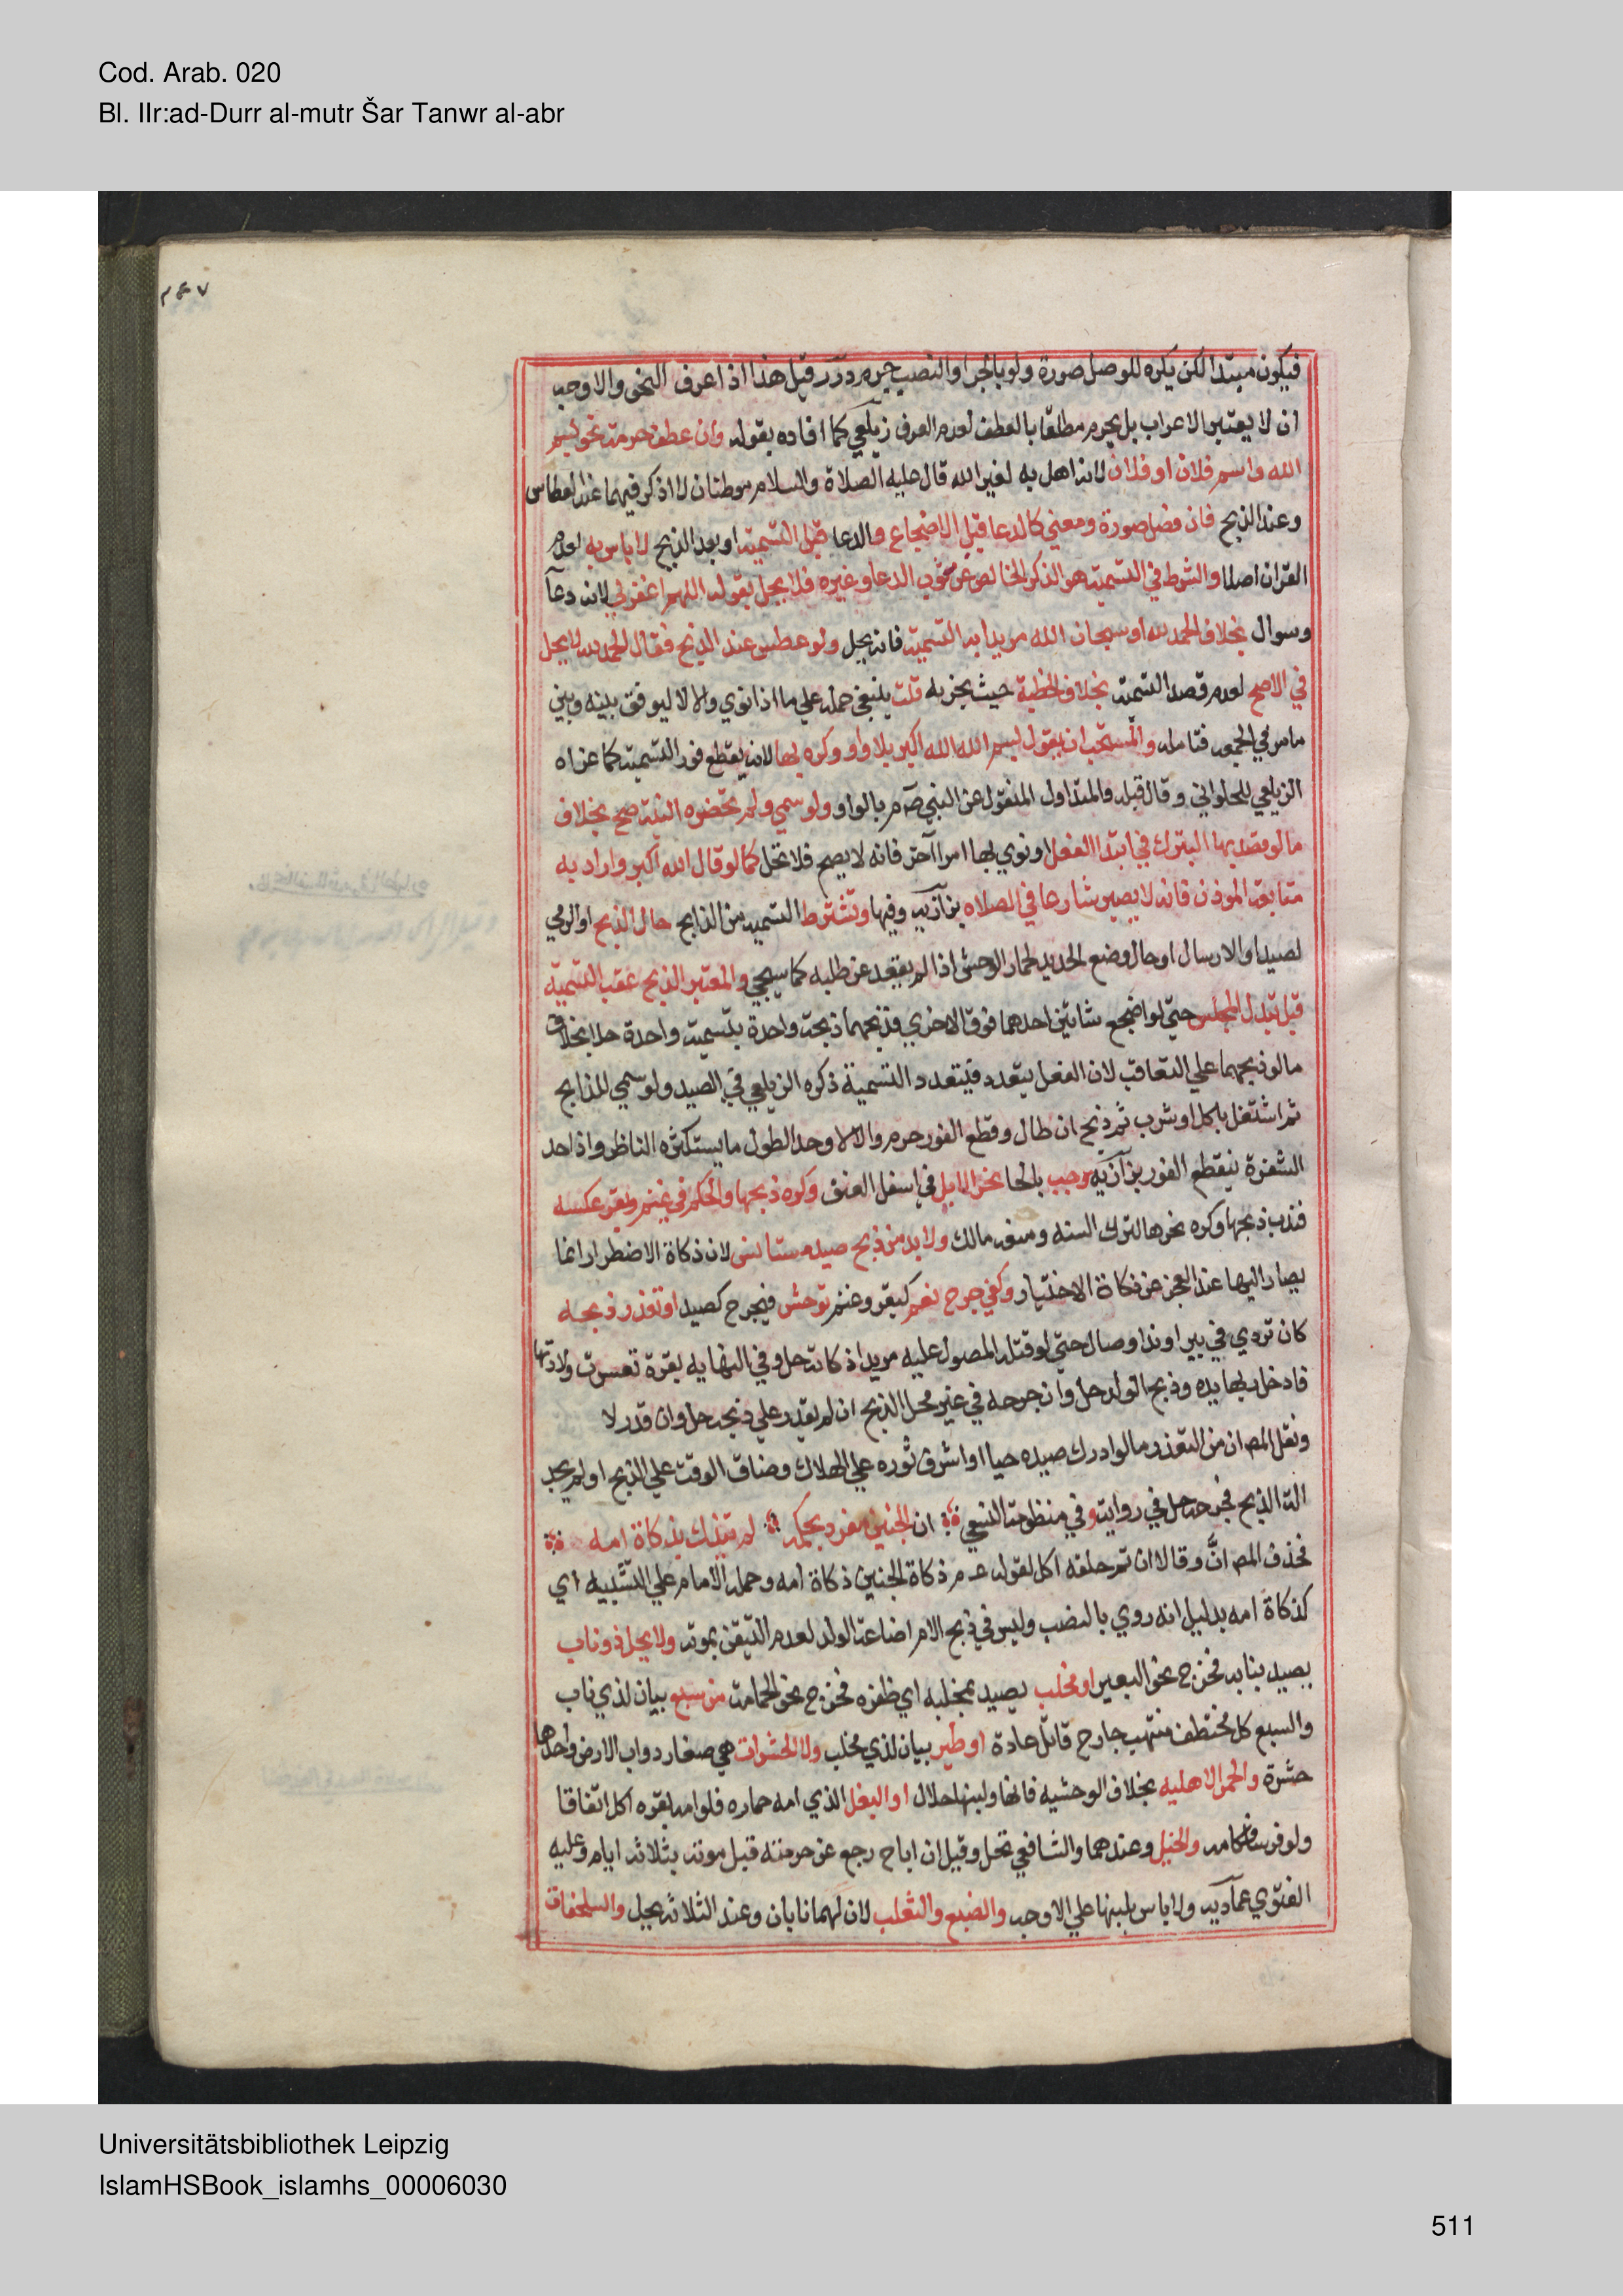 Cod. Arab. 020
Bl. IIr:ad-Durr al-mutr Šar Tanwr al-abr
فيكون مبتدا لكن يكره للوصل صورة ولو بالجر او النصب حرم درر قيل هذا اذا عرف النحو والاوجه
ان لا يعتبر الاعراب بل يحرم مطلقا بالعطف لعدم العرف زيلعي كما افاده بقوله وان عطف حرمت نحو بسم
الله واسم فلان او فلان لانه اهل به لغير الله قال عليه الصلاة والسلام موطنان لا اذكر فيهما عند العطاس
وعند الذبح فان فصل صورة ومعني كالدعا قبل الاضجاع والدعا قبل التسمية او بعد الذبح لا باس به لعدم
القران اصلا والشرط في التسمية هو الذكر الخالص عن شوب الدعا وغيره فلا يحل بقوله اللهم اغفر لي لانه دعآ
وسوال بخلاف الحمد لله او سبحان الله مريدا به التسمية فانه يحل ولو عطس عند الذبح فقال الحمد لله لا يحل
في الاصح لعدم قصد التسمية بخلاف الخطبة حيث يجزيه قلت ينبغي حمله علي ما اذا نوي والا لا ليوفق بينه وبين
ما مر في الجمعه فتامله والمستحب ان يقول بسم الله الله اكبر بلا واو وكره بها لانه يقطع فور التسمية كما عزاه
الزيلعي للحلواني وقال قبله والمتداول المنقول عن النبي صم بالواو ولو سمي ولم تحضره النية صح بخلاف
ما لو قصد بها التبرك في ابتدا الفعل او نوي بها امرا آخر فانه لا يصح فلا تحل كما لو قال الله اكبر واراد به
متابعة الموذن فانه لا يصير شارعا في الصلاه بزازيه وفيها وتشترط التسمية من الذابح حال الذبح او الرمي
لصيد او الارسال او حال وضع الحديد لحمار الوحش اذا لم يقعد عن طلبه كما سيجي والمعتبر الذبح عقب التسمية
قبل تبدل المجلس حتي لو اضجع شاتين احدهما فوق الاخري فذبحهما ذبحة واحدة بتسمية واحدة حلا بخلاف
ما لو ذبحهما علي التعاقب لان الفعل يتعدد فيتعدد التسمية ذكره الزيلعي في الصيد ولو سمي للذابح
ثم اشتغل باكل او شرب ثم ذبح ان طال وقطع الفور حرم والا لا وحد الطول ما يستكثره الناظر واذا حد
الشفرة ينقطع الفور بزازيه وحب بالحا نحر الابل في اسفل العنق وكره ذبحها والحكم في غنم وبقر عكسه
فندب ذبحها وكره نحرها لترك السنه ومنعه مالك ولا بد من ذبح صيد مستانس لان ذكاة الاضطرار انما
يصار اليها عند العجز عن ذكاة الاختيار وكفي جرح نعم كبقر وغنم توحش فيجرح كصيد او تعذر ذبحه
كان تردي في بير او ند او صال حتي لو قتله المصول عليه مريدا ذكاته حل وفي النهايه بقرة تعسرت ولادتها
فادخل ربها يده وذبح الولد حل وان جرحه في غير محل الذبح ان لم يقدر علي ذبحه حل وان قدر لا
ونقل المص ان من التعذر ما لو ادرك صيده حيا او اشرف ثوره علي الهلاك وضاق الوقت علي الذبح او لم يجد
الة الذبح فجرحه حل في رواية وفي منظومة النسفي ان الجنين مفرد بحكمه لم يتذك بذكاة امه
فحذف المص انَّ وقالا ان تم خلقه اكل لقوله عم ذكاة الجنين ذكاة امه وحمله الامام علي التشبيه اي
كذكاة امه بدليل انه روي بالنصب وليس في ذبح الام اضاعة الولد لعدم التيقن بموته ولا يحل ذو ناب
يصيد بنابه فخرج نحو البعير او مخلب يصيد بمخلبه اي ظفره فخرج نحو الحمامة من سبع بيان لذي ناب
والسبع كل مختطف منتهب جارح قاتل عادة او طير بيان لذي مخلب ولا الحشرات هي صغار دواب الارض واحدها
حشرة والحمر الاهليه بخلاف الوحشيه فانها ولبنها حلال او البغل الذي امه حماره فلو امه بقره اكل اتفاقا
ولو فرسا فكامه والخيل وعندهما والشافعي تحل وقيل ان اباح رجع عن حرمته قبل موته بثلاثة ايام وعليه
الفتوي عماديه ولا باس بلبنها علي الاوجه والضبع والثعلب لان لهما نابان وعند الثلاثة يحل والسلحفاة
Universitätsbibliothek Leipzig
IslamHSBook_islamhs_00006030
511